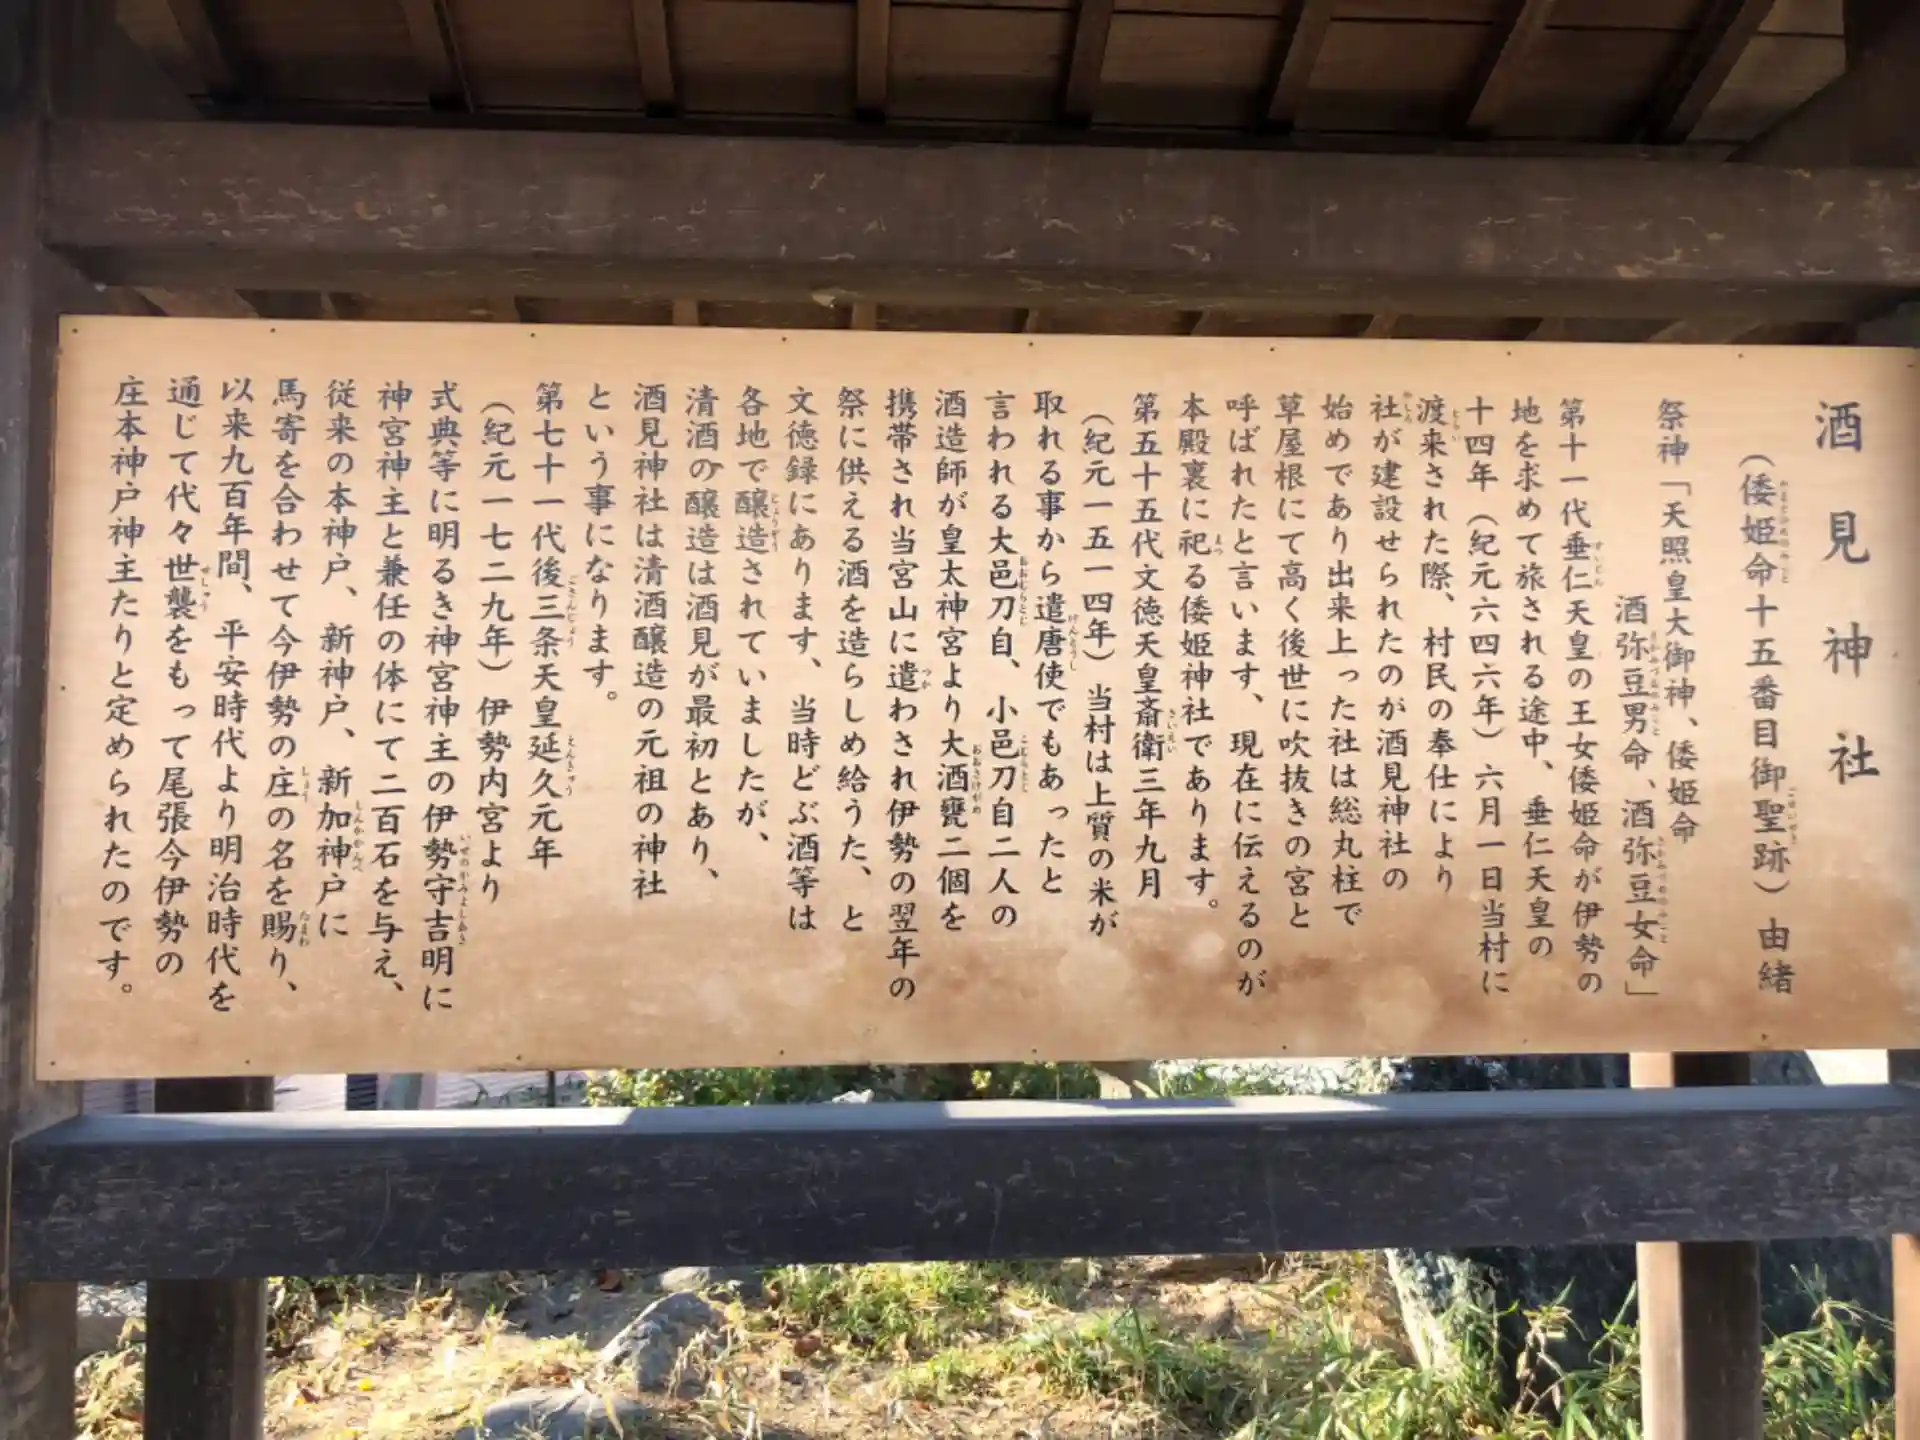 酒見神社
（倭姫命十五番目御聖跡）由緒
祭神「天照皇大御神、倭姫命
酒弥豆男命、酒弥豆女命」
第十一代垂仁天皇の王女倭姫命が伊勢の
地を求めて旅される途中、垂仁天皇の
十四年（紀元六四六年）六月一日当村に
渡来された際、村民の奉仕により
社が建設せられたのが酒見神社の
始めであり出来上った社は総丸柱で
草屋根にて高く後世に吹抜きの宮と
呼ばれたと言います、現在に伝えるのが
本殿裏に祀る倭姫神社であります。
第五十五代文徳天皇斎衛三年九月
（紀元一五一四年）当村は上質の米が
取れる事から遣唐使でもあったと
言われる大邑刀自、小邑刀自二人の
酒造師が皇太神宮より大酒甕二個を
携帯され当宮山に遣わされ伊勢の翌年の
祭に供える酒を造らしめ給うた、と
文徳録にあります、当時どぶ酒等は
各地で醸造されていましたが、
清酒の醸造は酒見が最初とあり、
酒見神社は清酒醸造の元祖の神社
という事になります。
第七十一代後三条天皇延久元年
（紀元一七二九年）伊勢内宮より
式典等に明るき神宮神主の伊勢守吉明に
神宮神主と兼任の体にて二百石を与え、
従来の本神戸、新神戸、新加神戸に
馬寄を合わせて今伊勢の庄の名を賜り、
以来九百年間、平安時代より明治時代を
通じて代々世襲をもって尾張今伊勢の
庄本神戸神主たりと定められたのです。